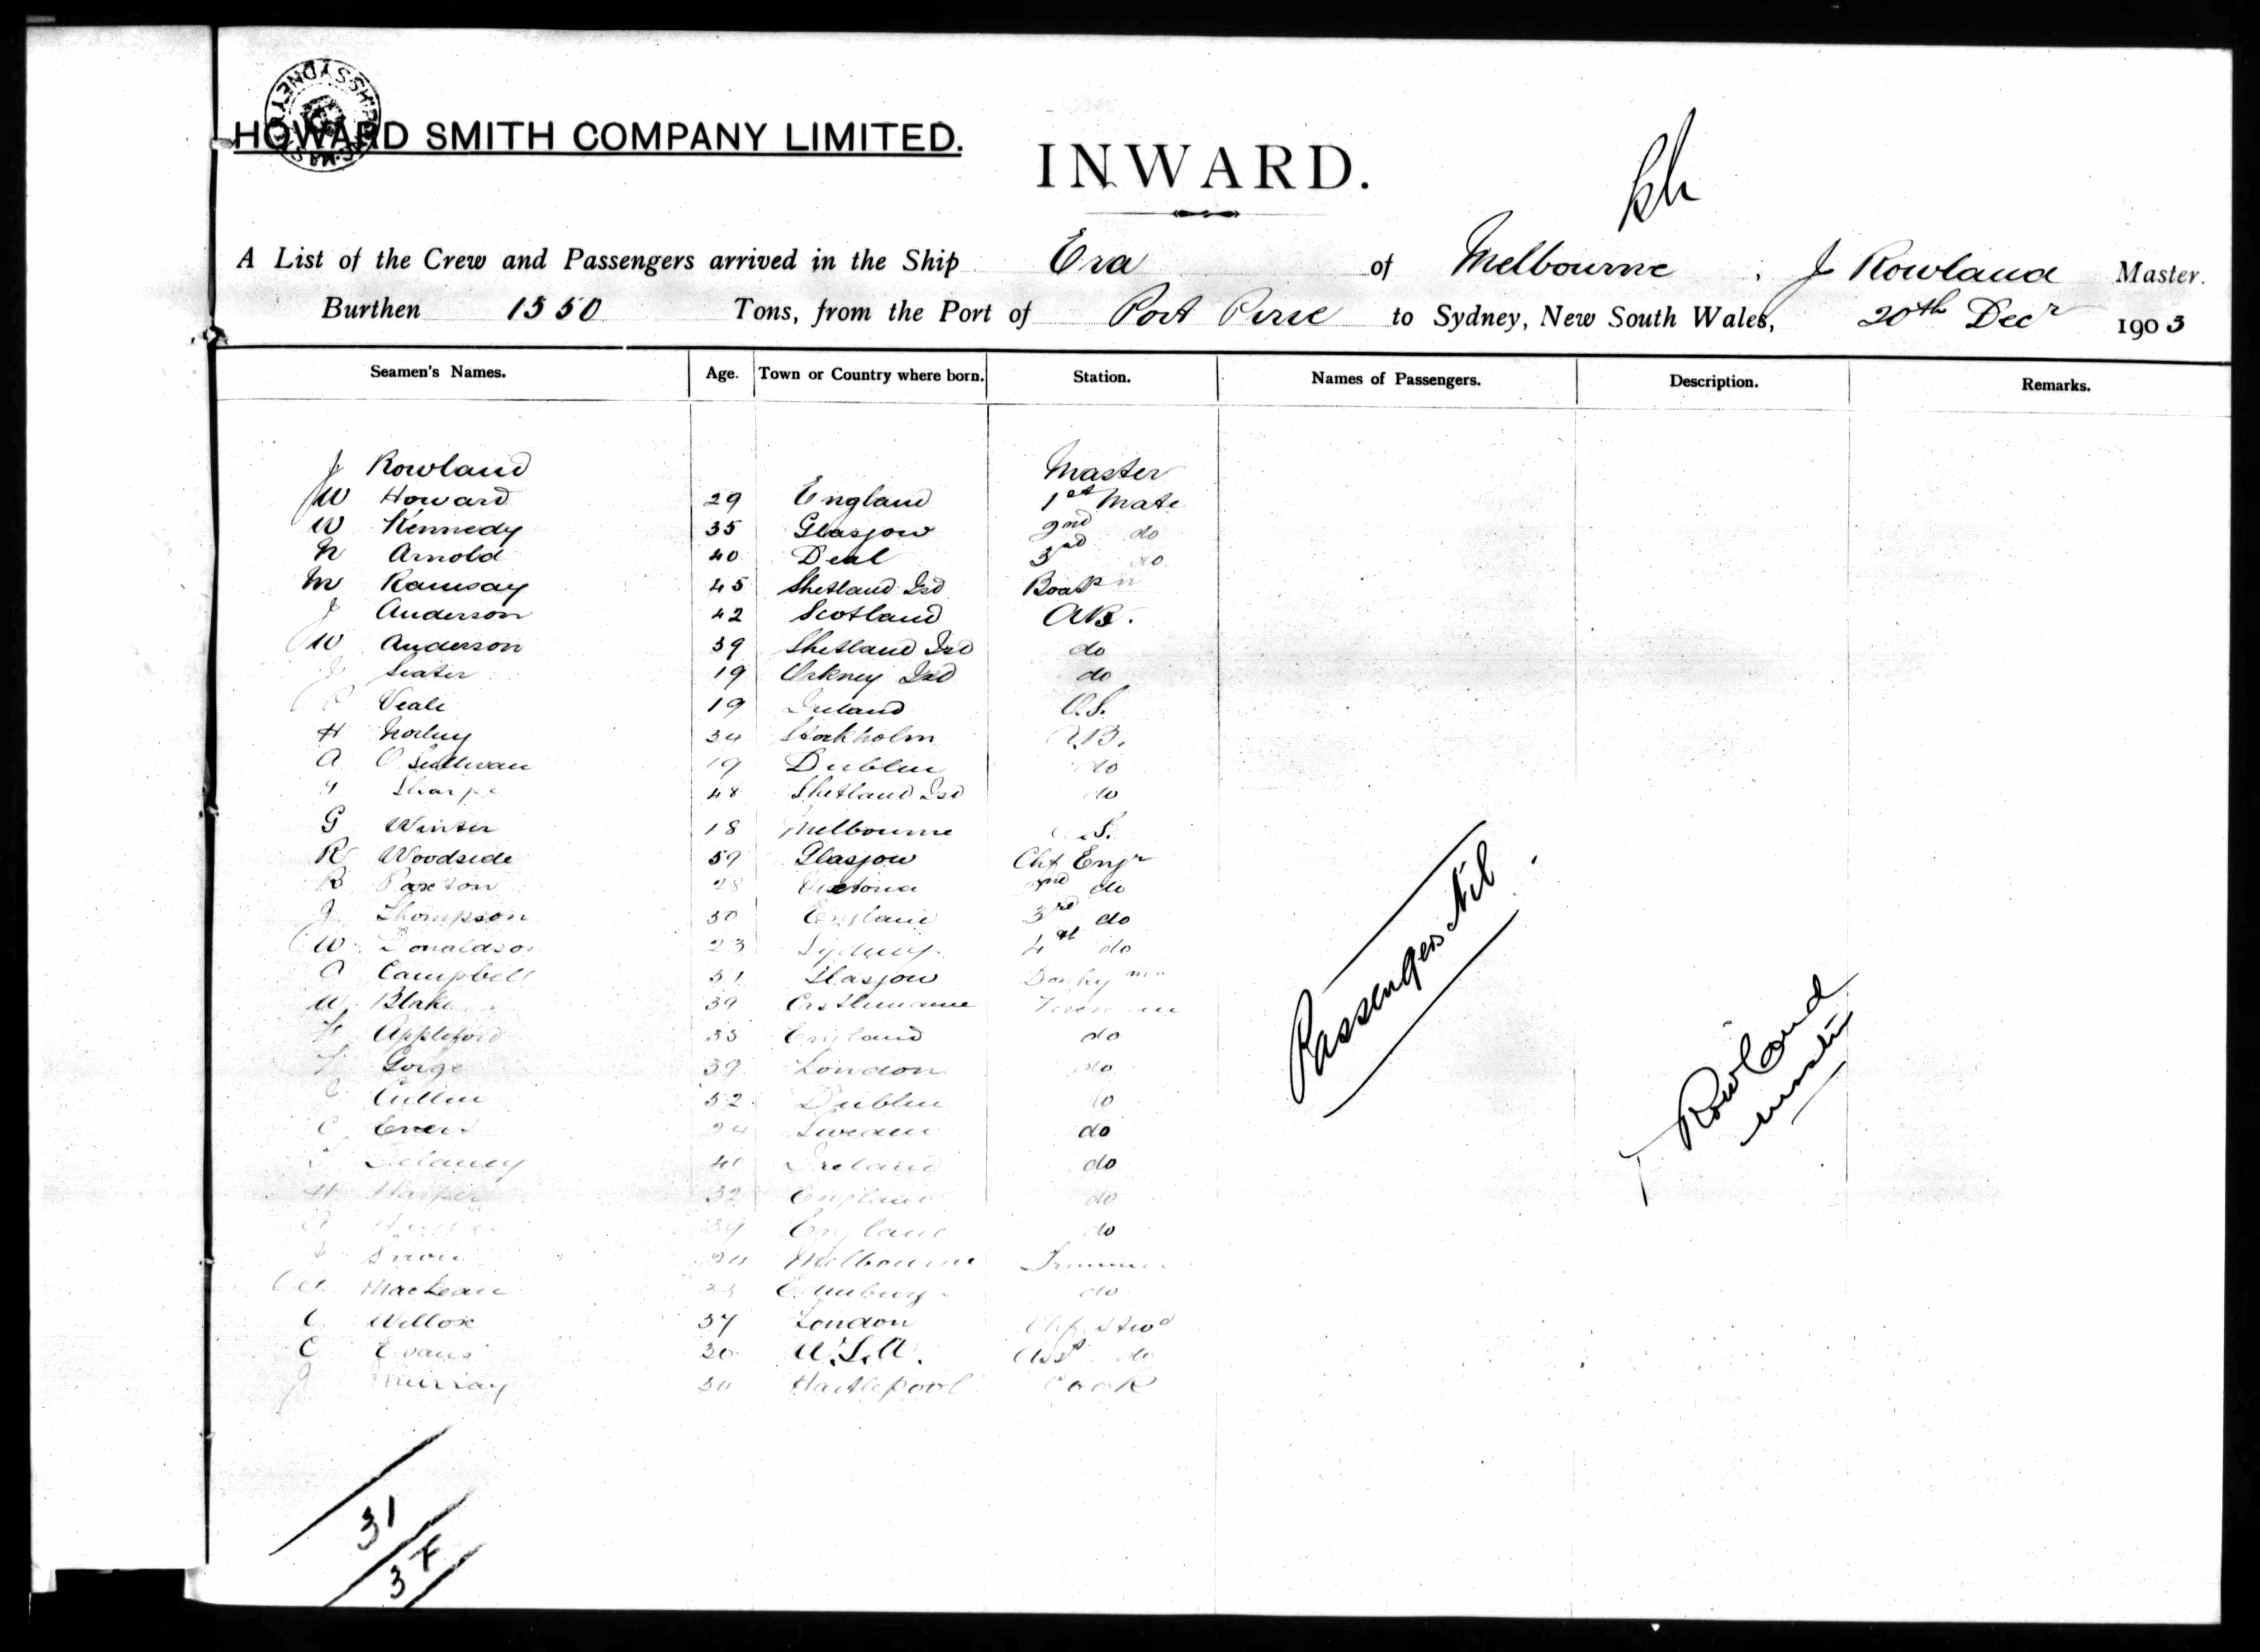 HOWARD SMITH COMPANY LIMITED.
INWARD.
A List of the Crew and Passengers arrived in the Ship Era of Melbourne, J Rowland Master.
Burthen 1550 Tons, from the Port of Port Pirie to Sydney, New South Wales, 20th Decr 1903
Seamen's Names. Age. Town or Country where born. Station. Names of Passengers. Description. Remarks.
J Rowland Master
W Howard 29 England 1st Mate
W Kennedy 35 Glasgow 2nd do
N Arnold 40 Deal 3rd do
M Ramsay 45 Shetland Isd Boatsn
J Anderson 42 Scotland AB.
W Anderson 39 Shetland Isd do
J Seater 19 Orkney Isd do
Veale 19 Ireland O.S.
H 34 Stockholm A.B.
A O'Sullivan 19 Dublin do
Sharpe 48 Shetland Isd do
G Winter 18 Melbourne O.S.
R Woodside 59 Glasgow Chf Engr
B Paxton 28 Victoria 2nd do
J Thompson 30 England 3rd do
W Donaldson 23 Sydney 4th do
A Campbell 31 Glasgow Donkymn
W Blake 39 Castlemaine Fireman
Appleford 35 England do
Gorge 39 London do
Cullen 52 Dublin do
C 24 Sweden do
Delaney Ireland do
H Harper 32 England do
39 England do
Snow 24 Melbourne Trimmer
MacLean Edinburg do
C Willox 37 London Chf Stwd
C Evans 30 U.S.A. Asst do
J Murray Hartlepool Cook
Passengers Nil
J Rowland
master
31